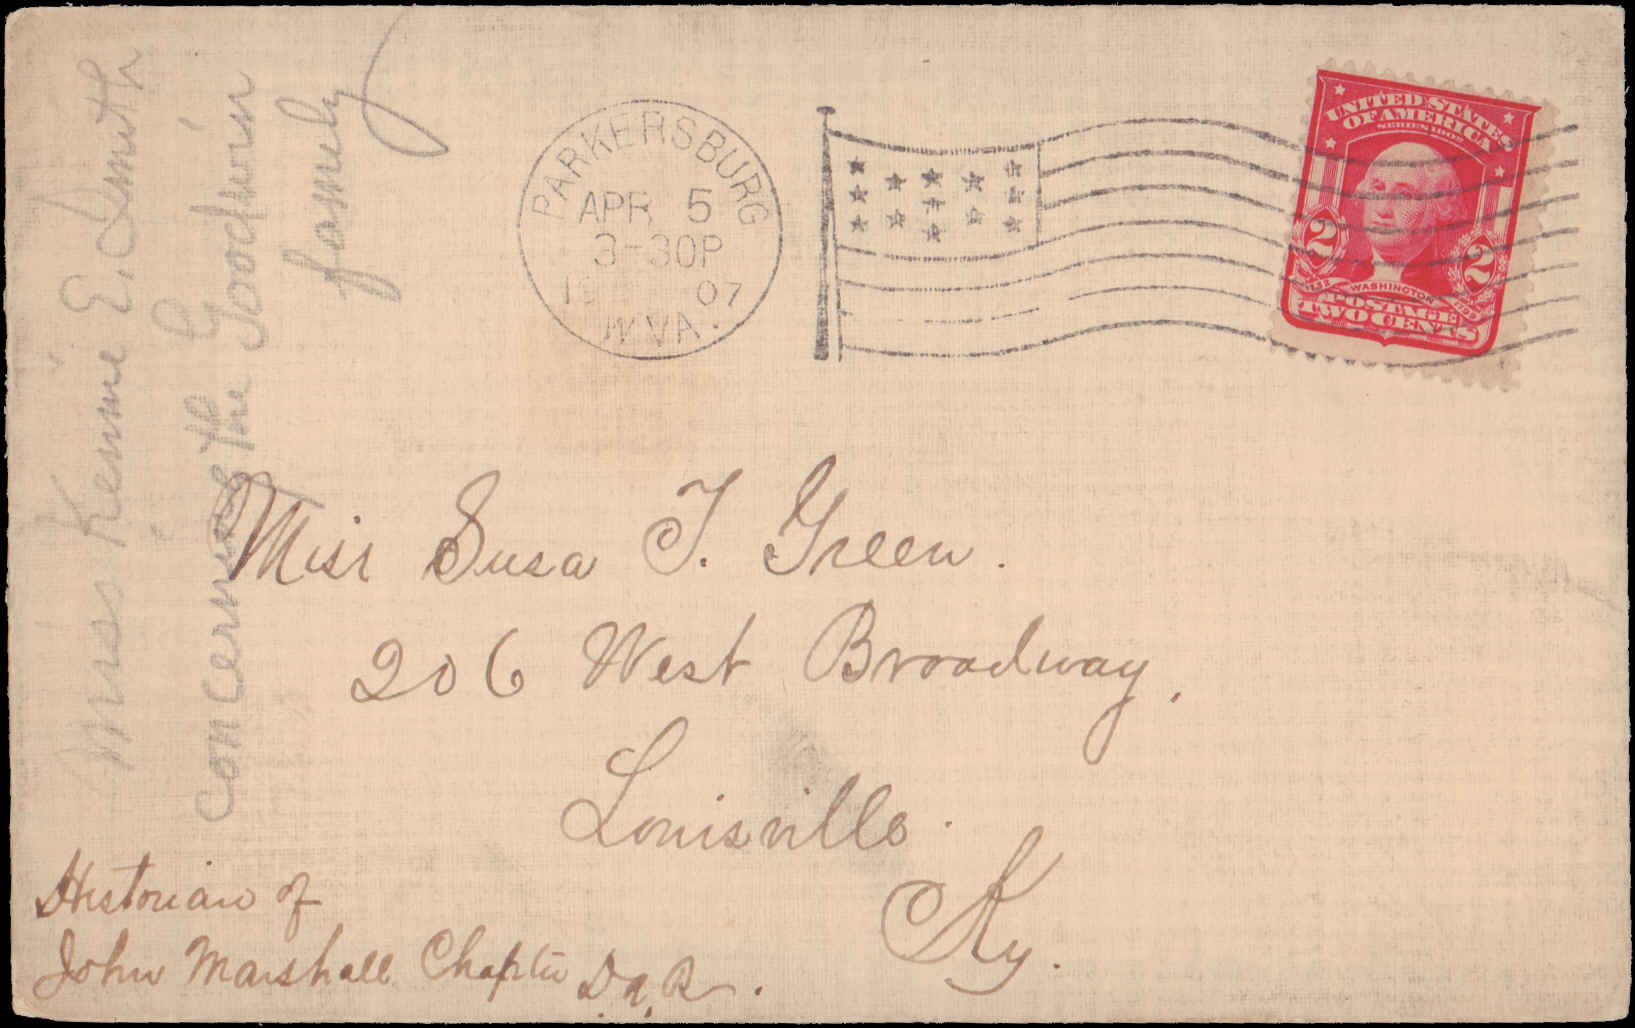 Miss Kennie E. Smith
concerning the Goodwin
family
PARKERSBURG
APR 5
3-30P
07
W.VA.
UNITED STATES
OF AMERICA
SERIES 1902
2 2
1732 WASHINGTON 1799
POSTAGE
TWO CENTS
Miss Susa T. Green.
206 West Broadway.
Louisville.
Ky.
Historian of
John Marshall Chapter D.A.R.